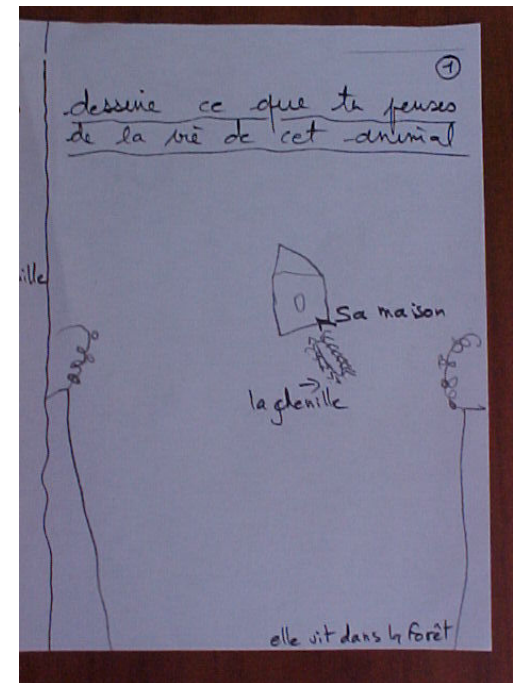 1
dessine ce que tu penses
de la vie de cet animal
ille
Sa maison
la chenille
elle vit dans la forêt